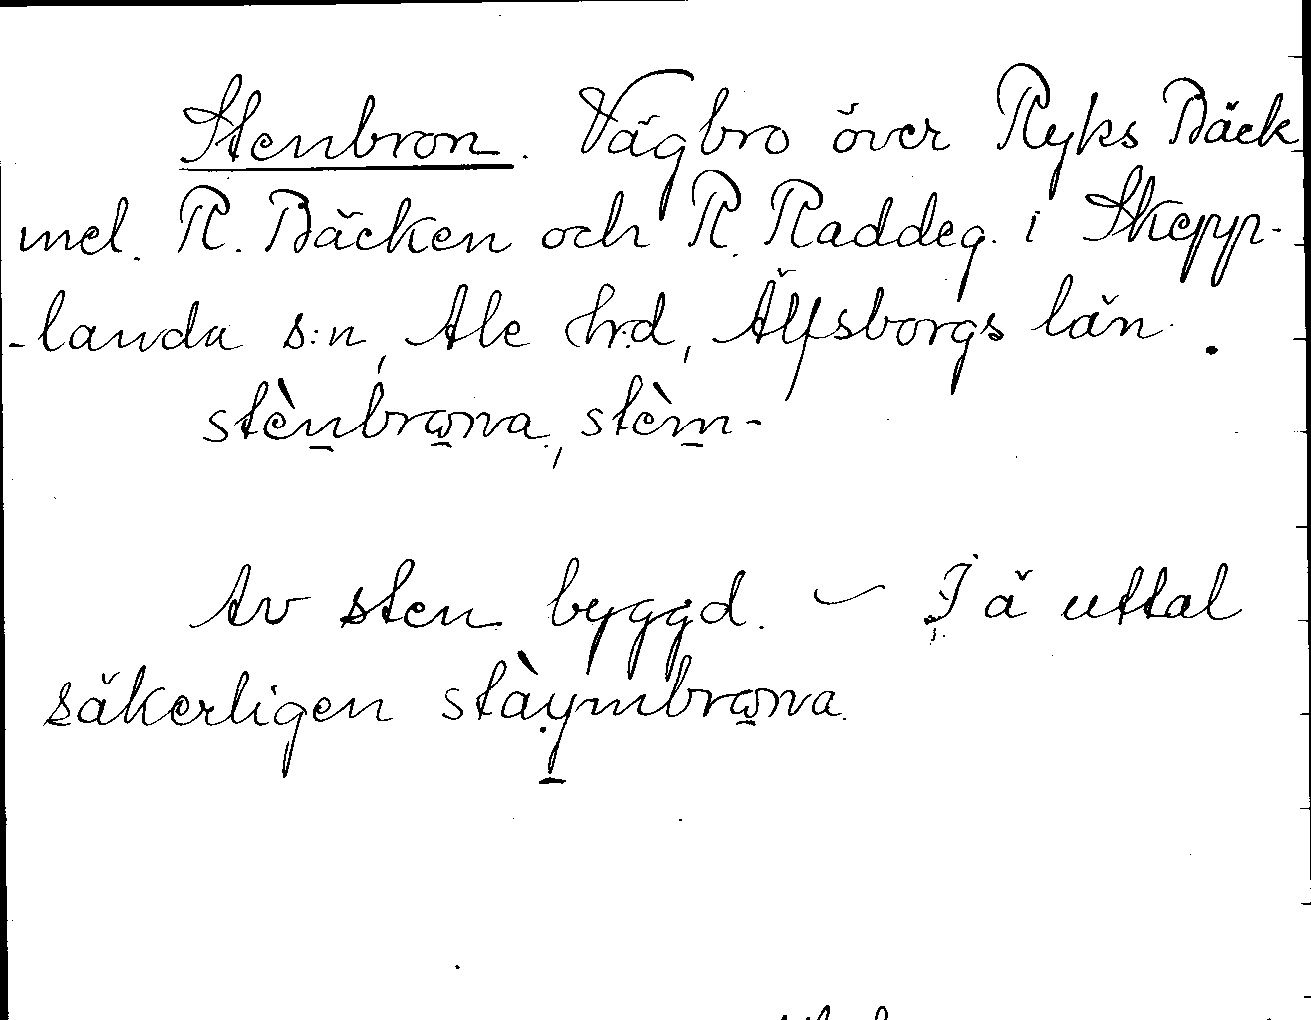 Stenbron. Vägbro över Ryks Bäck
mel. R. Bäcken och R. Raddeg. i Skepp-
-landa s:n, Ale hrd, Älfsborgs län.
stènbrωna, stèm-
Av sten byggd. – I ä uttal
säkerligen stàymbrωna.